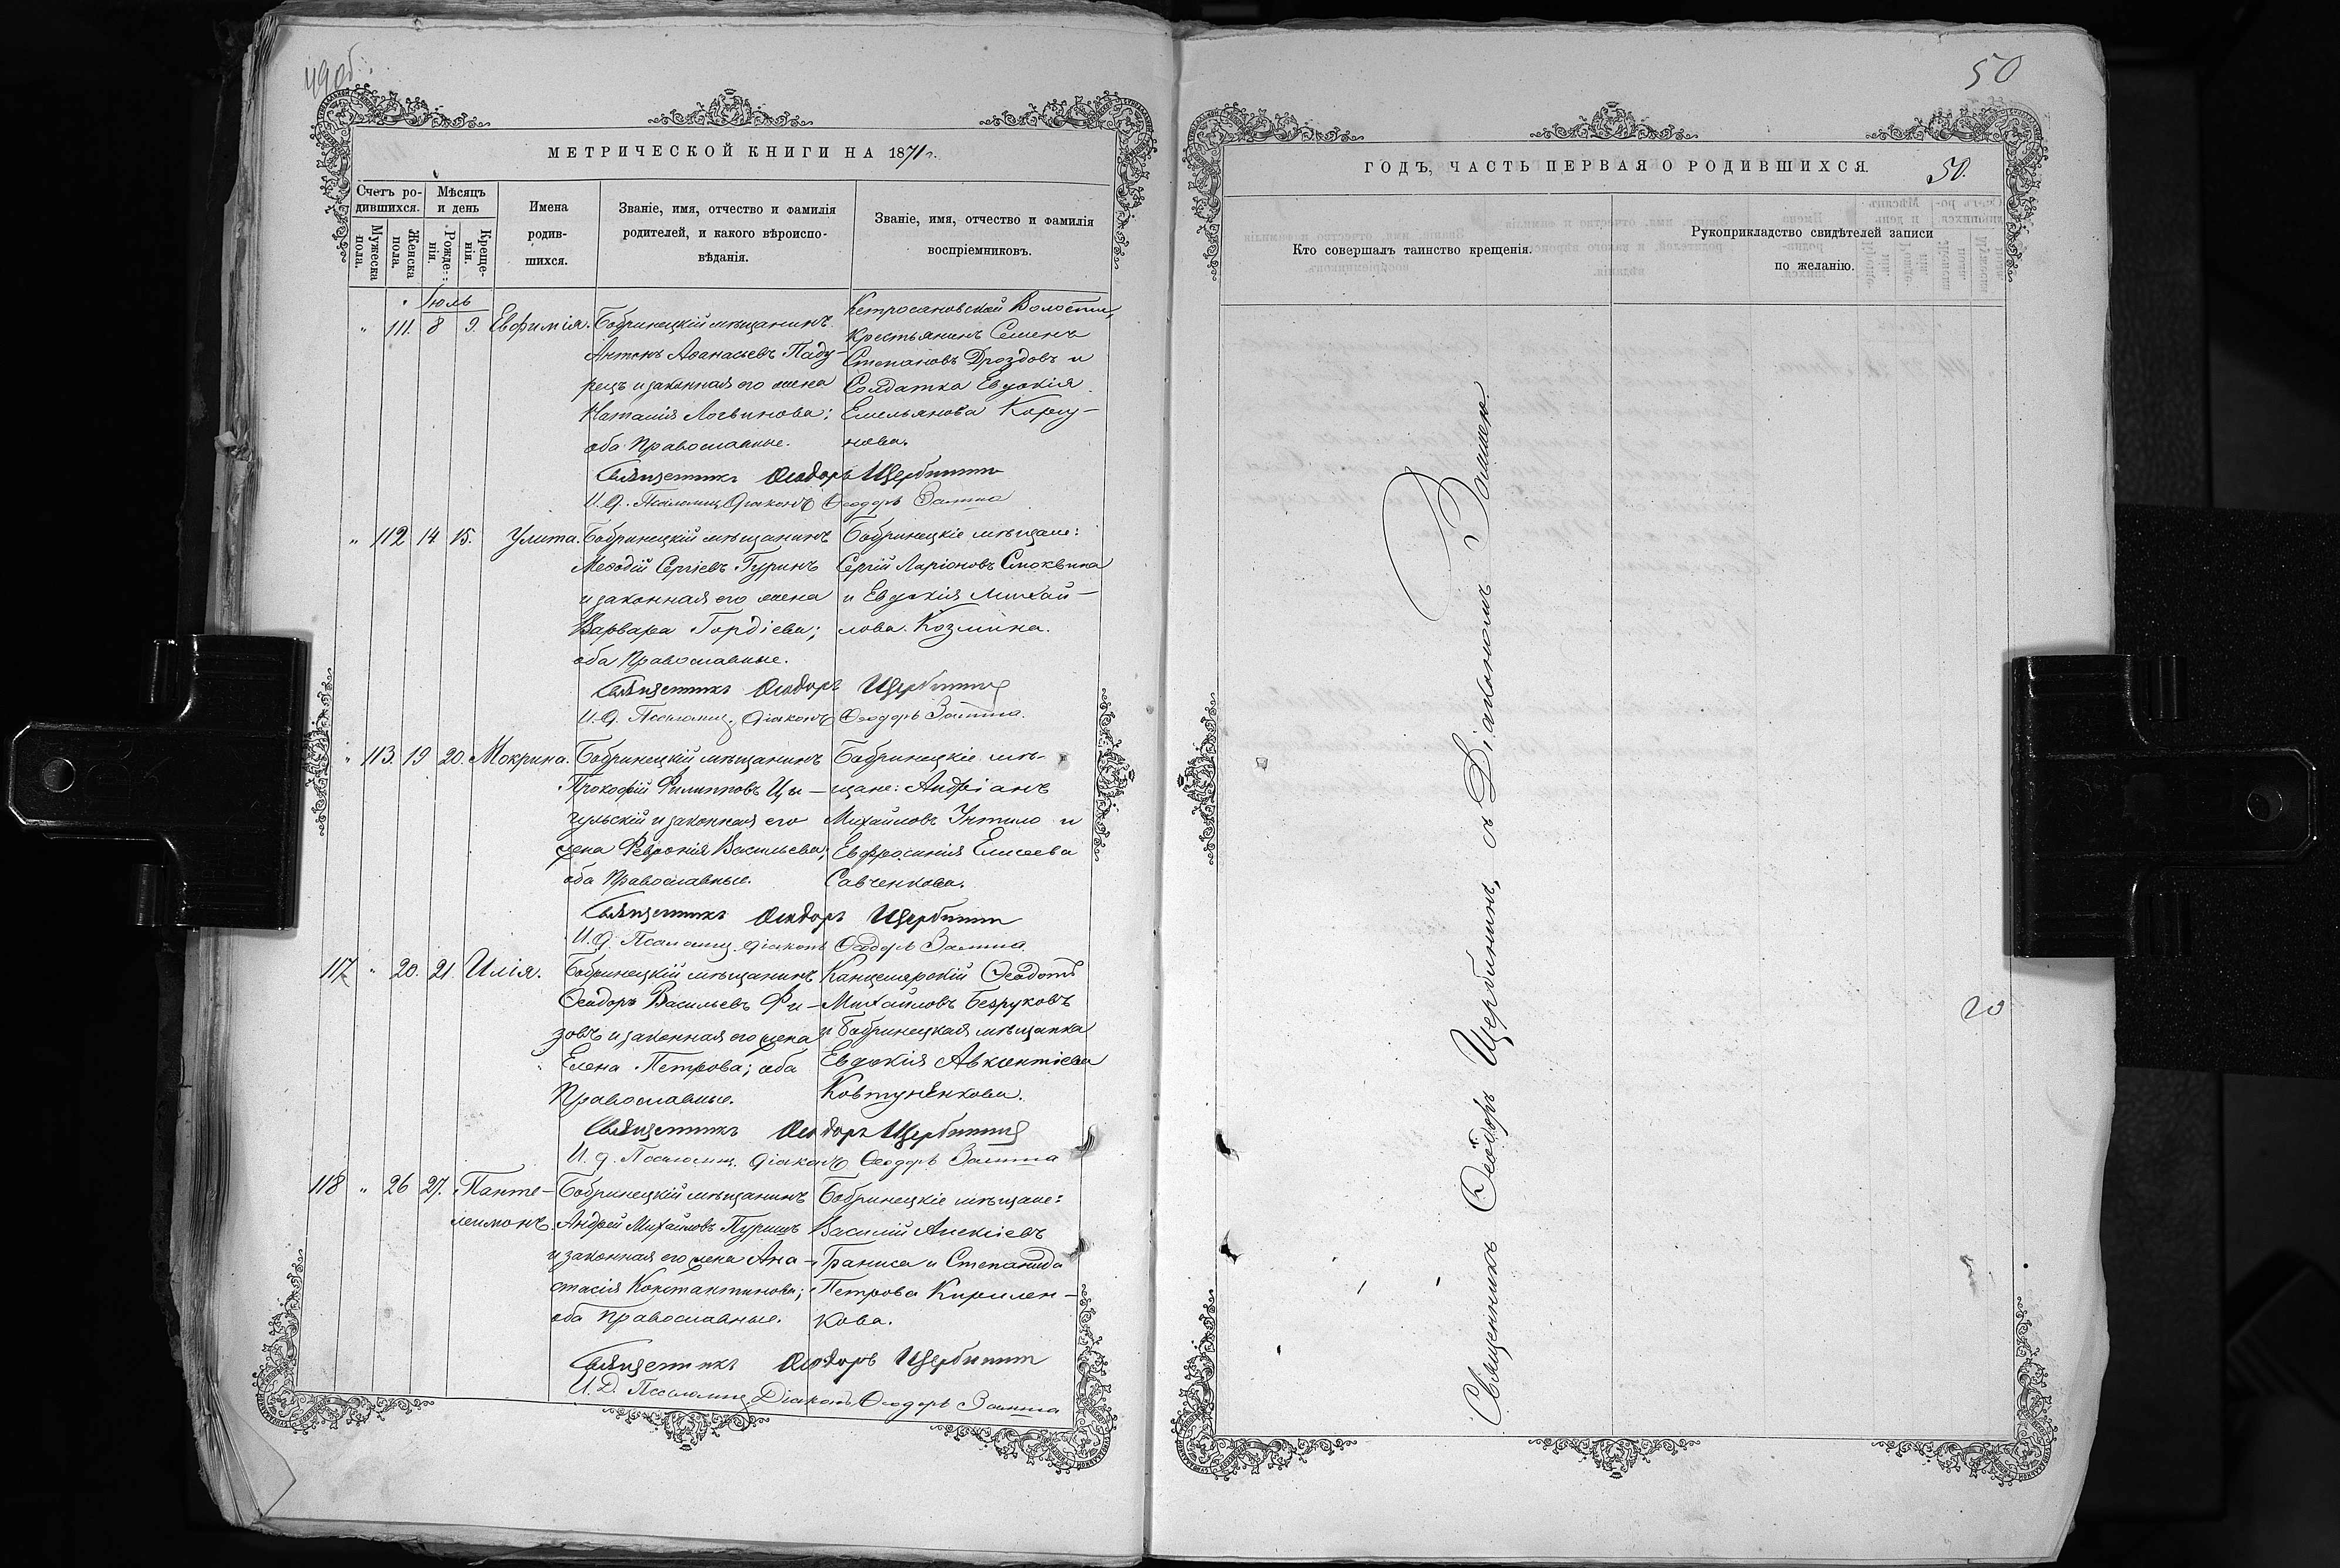 49об.
МЕТРИЧЕСКОЙ КНИГИ НА 1871 г.
Счетъ ро-
дившихся.
Мѣсяцъ
и день
Мужеска
пола.
Женска
пола.
Рожде-
нія.
Креще-
нія.
Имена
родив-
шихся.
Званіе, имя, отчество и фамилія
родителей, и какого вѣроиспо-
вѣданія.
Званіе, имя, отчество и фамилія
воспріемниковъ.
Іюль
" 111. 8 9. Евфимія.
Бобринецкій мѣщанинъ
Антонъ Аѳанасьевъ Паду-
рецъ и законная его жена
Наталія Логвинова;
оба Православные.
Кетросановской Волости,
крестьянинъ Семенъ
Степановъ Дроздовъ и
Солдатка Евдокія
Емельянова Коршу-
нова.
Священникъ Ѳеодоръ Щербининъ
И. Д. Псаломщ. Діаконъ Ѳеодоръ
" 112 14 15. Улита.
Бобринецкій мѣщанинъ
Меѳодій Сергіевъ Гуринъ
и законная его жена
Варвара Гордіева;
оба Православные.
Бобринецкіе мѣщане:
Сергій Ларіоновъ Смоквина
и Евдокія Михай-
лова Козмина.
Священникъ Ѳеодоръ Щербининъ
И. Д. Псаломщ. Діаконъ Ѳеодоръ
" 113. 19 20. Мокрина.
Бобринецкій мѣщанинъ
Прокофій Филипповъ Цы-
гульскій и законная его
жена Феврония Васильева;
оба Православные.
Бобринецкіе мѣ-
щане: Андріанъ
Михайловъ Унтило и
Евфросинія Елисеева
Савченкова.
Священникъ Ѳеодоръ Щербининъ
И. Д. Псаломщ. Діаконъ Ѳеодоръ
117 " 20. 21. Илія.
Бобринецкій мѣщанинъ
Ѳеодоръ Васильевъ Фи-
зовъ и законная его жена
Елена Петрова; оба
Православные.
Канцелярскій Ѳеодотъ
Михайловъ Безруковъ
и Бобринецкая мѣщанка
Евдокія Авкентіева
Ковтуненкова.
Священникъ Ѳеодоръ Щербининъ
И. Д. Псаломщ. Діаконъ Ѳеодоръ
118 " 26 27. Панте-
леимонъ.
Бобринецкій мѣщанинъ
Андрей Михайловъ Пуришъ
и законная его жена Ана-
стасія Константинова;
оба Православные.
Бобринецкіе мѣщане:
Василій Алексіевъ
Траниса и Степанида
Петрова Кирилен-
кова.
Священникъ Ѳеодоръ Щербининъ
И. Д. Псаломщ. Діаконъ Ѳеодоръ
50
ГОДЪ, ЧАСТЬ ПЕРВАЯ О РОДИВШИХСЯ.
50.
Кто совершалъ таинство крещенія.
Рукоприкладство свидѣтелей записи
по желанію.
Священникъ Ѳеодоръ Щербининъ, съ Діакономъ
20